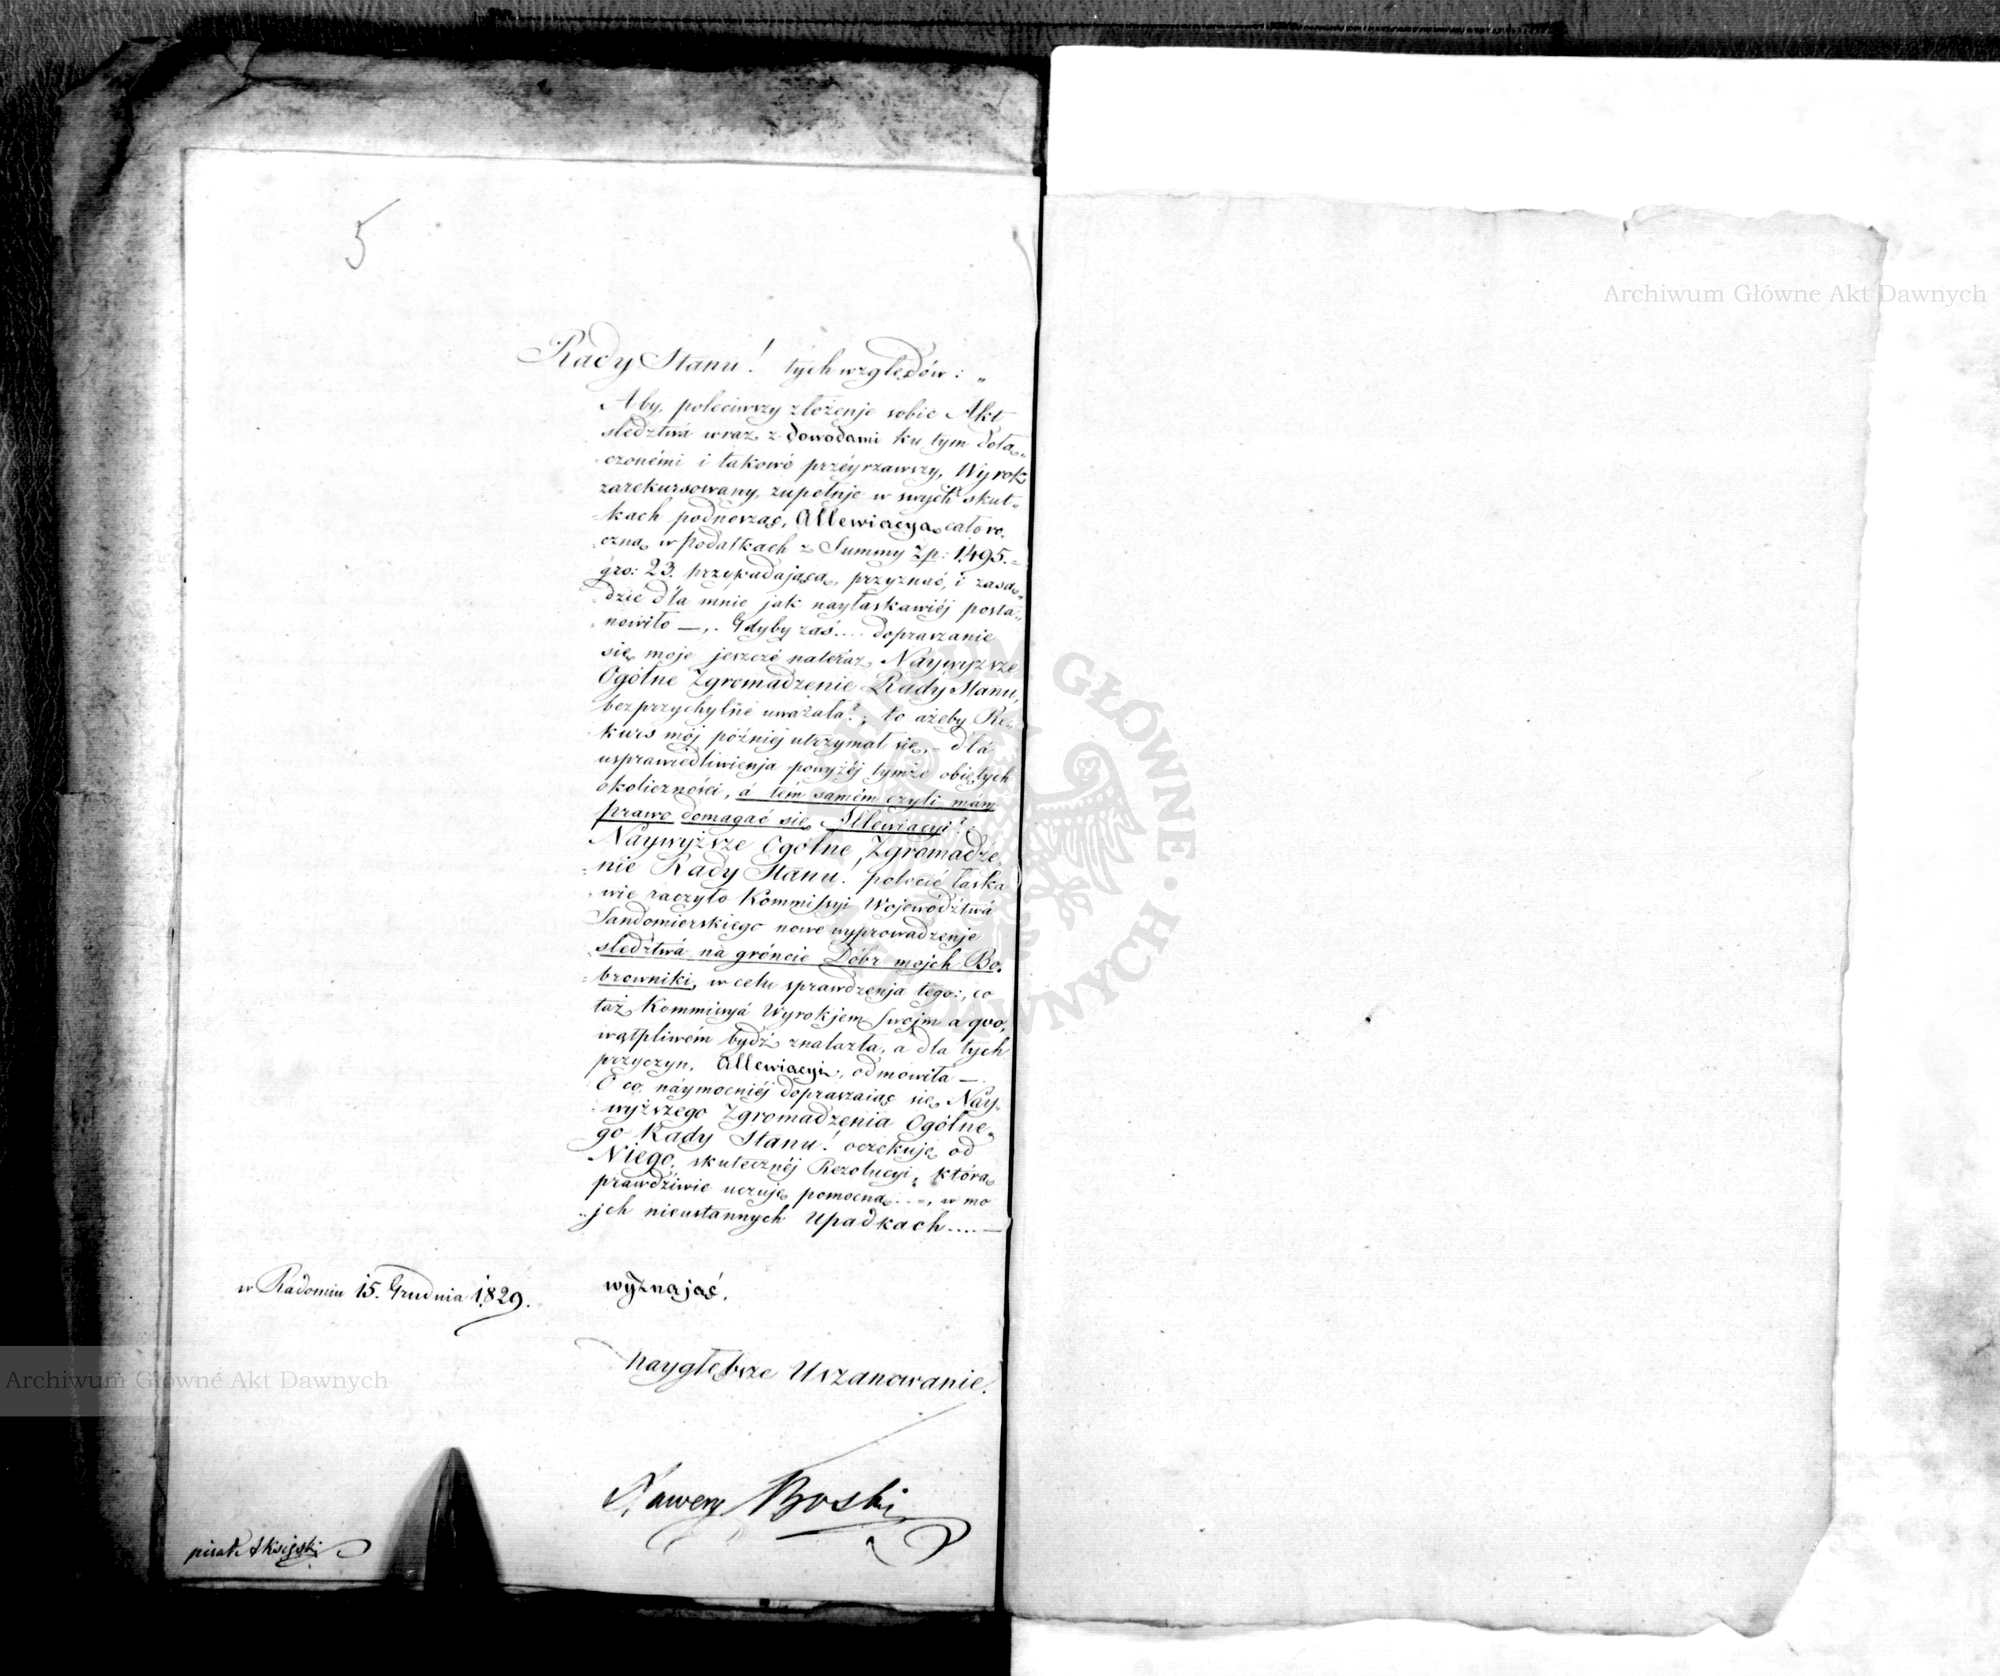 5
Rady Stanu! tych względów: „
Aby, poleciwszy złożenje sobie Akt
sledztwá wraz z Dowodami ku tym dołą„
„czonémi i takowé przéyrzawszy, Wyrok
zarekursowany, zupełnje w swych skut„
„kach podnosząc, Allewiacyą cało ro„
„czną w Podatkach z Summy Złp: 1,495.„
gro: 23. przypadającą, przyznać, i zasa„
„dzić dla mnie jak nayłaskawiéj posta„
„nowiło —,. Gdyby zaś.... dopraszanie
się moje jeszczé nateráz, Naywyższe
Ogólne Zgromadzenie Rady Stanu,
bezprzychylné uważała?, to ażeby Re„
kurs mój późniéj utrzymał się, – dla
usprawiedliwienja powyżéj tymże obiętych
okoliczności, á tém samém czyli mám
prawo domagać się Allewiacyi?.
Naywyższe Ogólne Zgromadze„
„nie Rady Stanu! polecić łaska„
„wie raczyło Kommissyi Wojewódźtwá
Sandomierskiego nowe wyprowadzenje
sledźtwá na gróncie Dóbr mojch Bo„
„browniki, w celu sprawdzenja tego:, co
táż Kommissyá Wyrokjem swojm a quo,
wątpliwém bydź znalazła, a dla tych
przyczyn, Allewiacyi, odmowiła —.
O co, náymocniéj dopraszając się Náy„
„wyższego Zgromadzenia Ogólne„
go Rady Stanu! oczekuję od
Niego, skutecznéj Rezolucyi, którą
prawdźiwie uczuję pomocną..., w mo
„jch nieustannych Upadkach....—
w Radomiu 15. Grudnia 1829.
wyznając,
naygłębsze Uszanowanie.
Xawery Boski
Archiwum Główne Akt Dawnych
Archiwum Główne Akt Dawnych